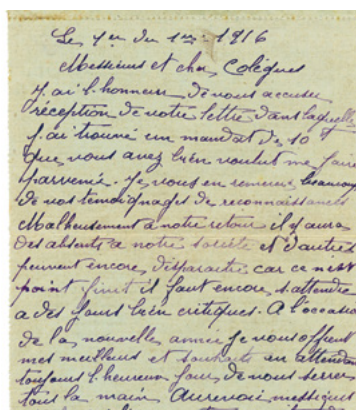 Le 1er du 1er 1916
Messieurs et cher Colègues
J'ai l'honneur de vous accuser
réception de votre lettre dans laquelle
j'ai trouvé un mandat de 10
que vous avez bien voulut me faire
parvenir. Je vous en remercie beaucoup
de vos témoignages de reconnaissances
Malheusement a notre retour il y aura
des absents a notre société et d'autres
peuvent encore disparaitre car ce n'est
point finit il faut encore s'attendre
a des jours bien critiques. A l'occasion
de la nouvelle année je vous offrent
mes meilleurs et souhaits en attendant
toujours l'heureux jour de vous serrer
tous la main Aurevoir messieurs